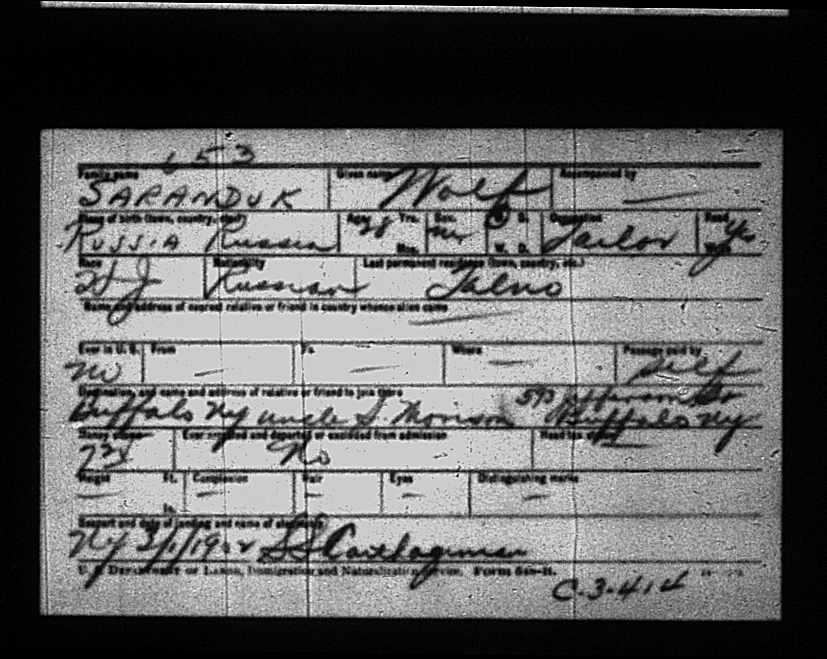 653
Family name Given name Accompanied by
SARANDUK Wolf —
Place of birth (town, country, etc.) Age Yrs. Mos. Sex S. W. D. Occupation Read
Russia Russia 28 M Tailor Yes
Race Nationality Last permanent residence (town, country, etc.)
H J Russian Talno
Name and address of nearest relative or friend in country whence alien came
—
Ever in U. S. From To Where Passage paid by
no — — — self
Destination and name and address of relative or friend to join there
Buffalo Ny uncle S. Monson Jefferson St Buffalo Ny
Money shown Ever arrested and deported or excluded from admission Head tax
No —
Height Ft. In. Complexion Hair Eyes Distinguishing marks
— — — — —
Seaport and date of landing and name of steamship
Ny 3/1/1902 SS Carthaginian
U. S. Department of Labor, Immigration and Naturalization Service. Form
C-3-414